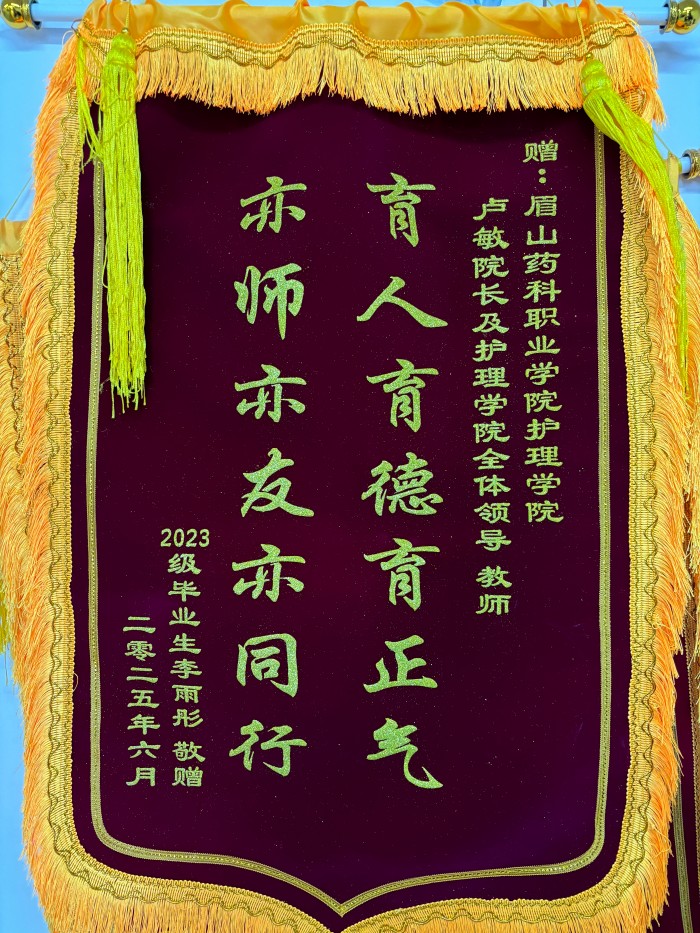 赠：眉山药科职业学院护理学院
卢敏院长及护理学院全体领导 教师
育人育德育正气
亦师亦友亦同行
2023级毕业生李雨彤 敬赠
二零二五年六月